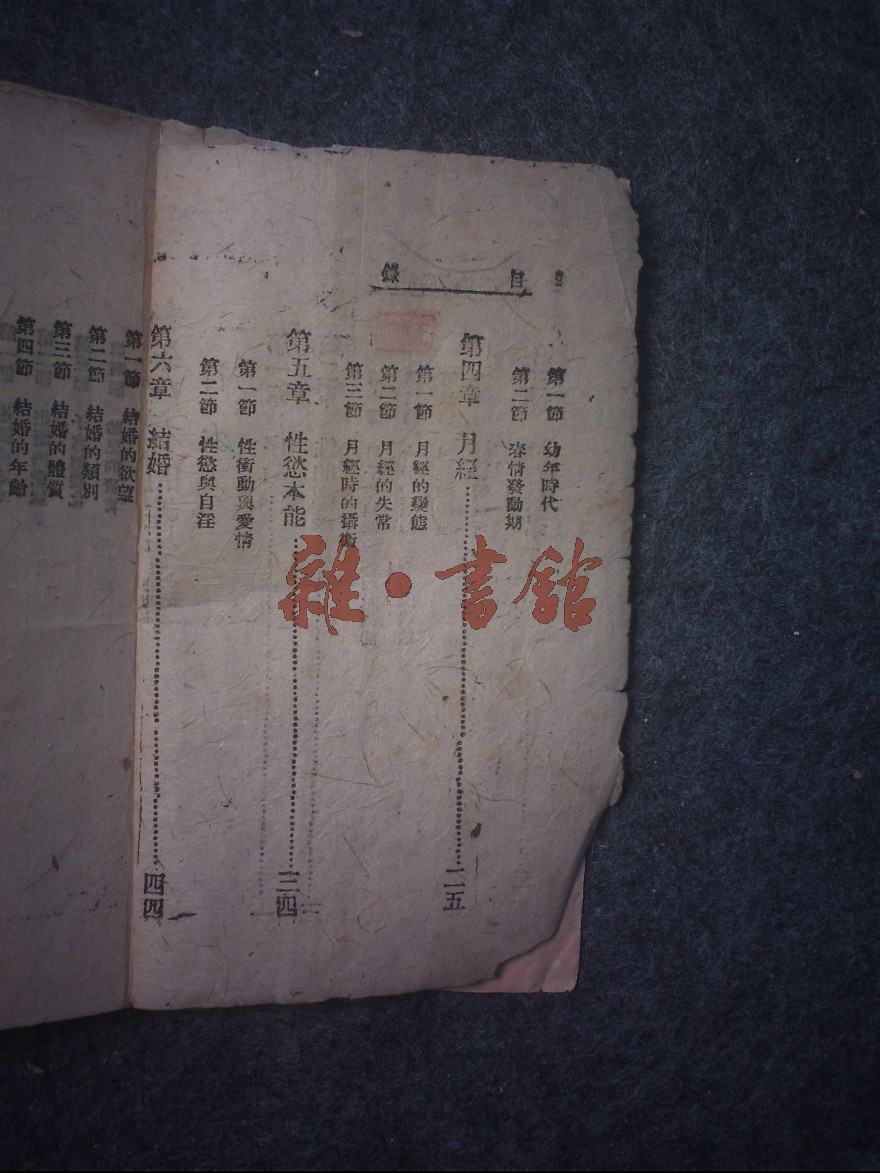 目錄
第一節 幼年時代
第二節 春情發動期
第四章 月經 二五
第一節 月經的變態
第二節 月經的失常
第三節 月經時的攝衛
第五章 性慾本能 三四
第一節 性衝動與愛情
第二節 性慾與自淫
第六章 結婚 四四
第一節 結婚的欲望
第二節 結婚的類別
第三節 結婚的體質
第四節 結婚的年齡
雜·書館